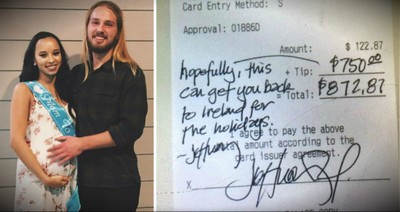 Card Entry Method: S
Approval: 018860
Amount: $ 122.87
hopefully, this
+ Tip: $750.00
can get you back
= Total: $872.87
to Ireland for
the holidays.
agree to pay the above
amount according to the
card issuer agreement.
X